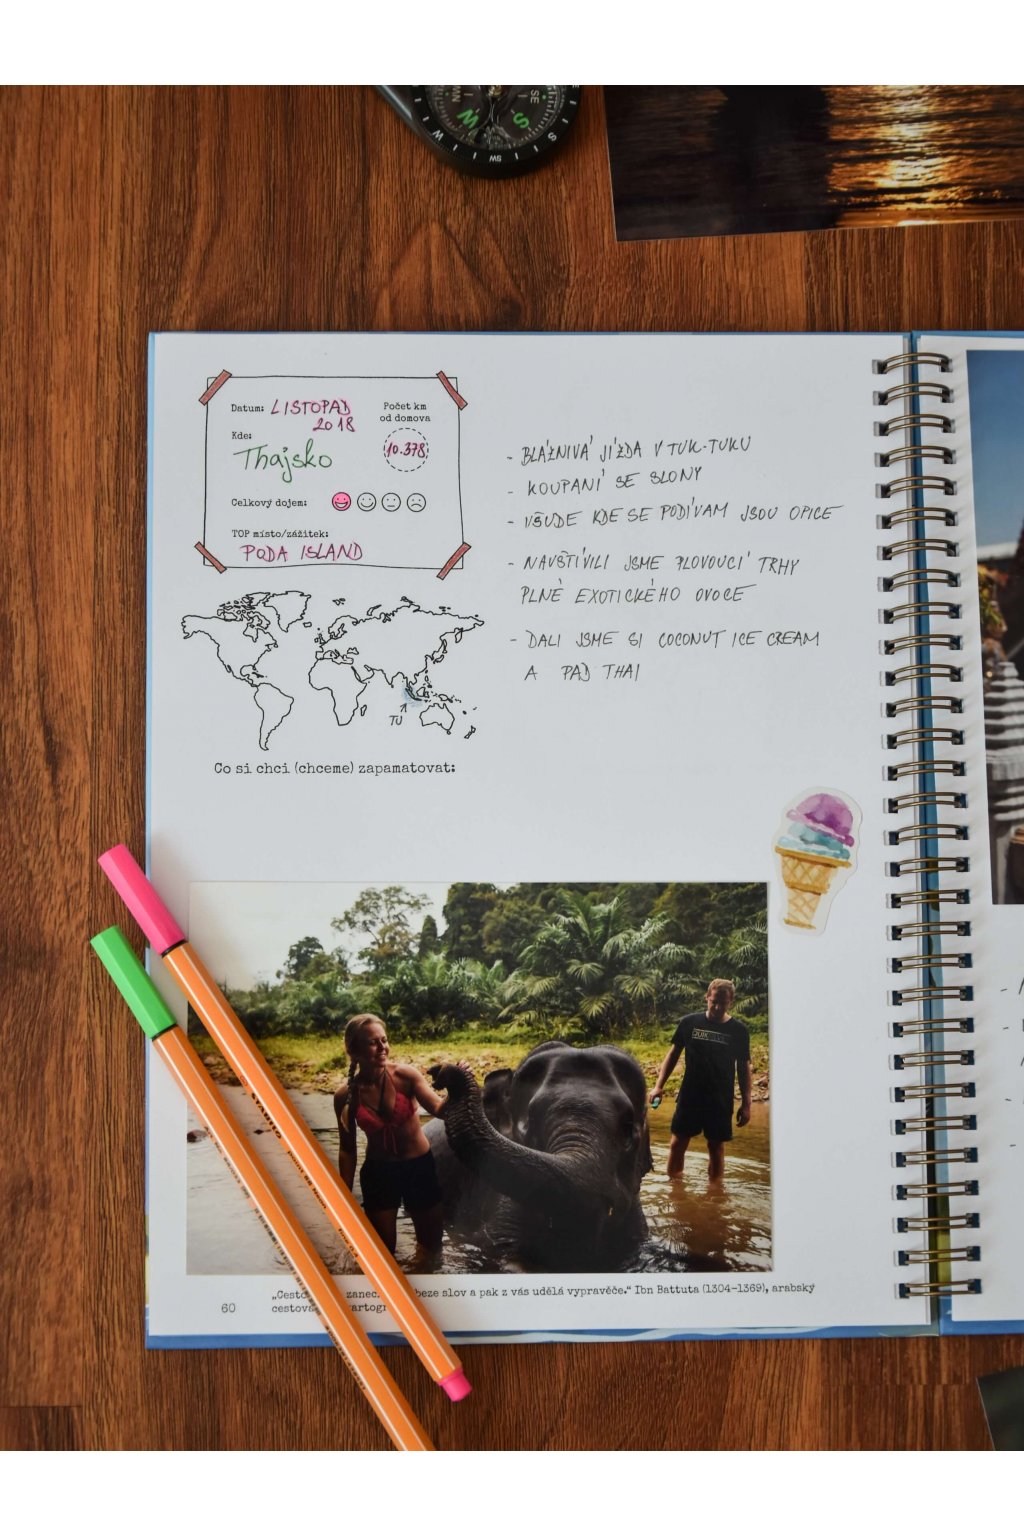 NW
W
S
SE
W
SW
S
Datum: LISTOPAD
2018
Počet km
od domova
10.378
Kde:
Thajsko
Celkový dojem:
TOP místo/zážitek:
PODA ISLAND
TU
Co si chci (chceme) zapamatovat:
- BLÁZNIVÁ JÍZDA V TUK-TUKU
- KOUPANÍ SE SLONY
- VŠUDE KDE SE PODÍVAM JSOU OPICE
- NAVŠTÍVILI JSME PLOVOUCÍ TRHY
PLNÉ EXOTICKÉHO OVOCE
- DALI JSME SI COCONUT ICE CREAM
A PAD THAI
STABILO
point 88
60
zanec beze slov a pak z vás udělá vypravěče.“ Ibn Battuta (1304–1369), arabský